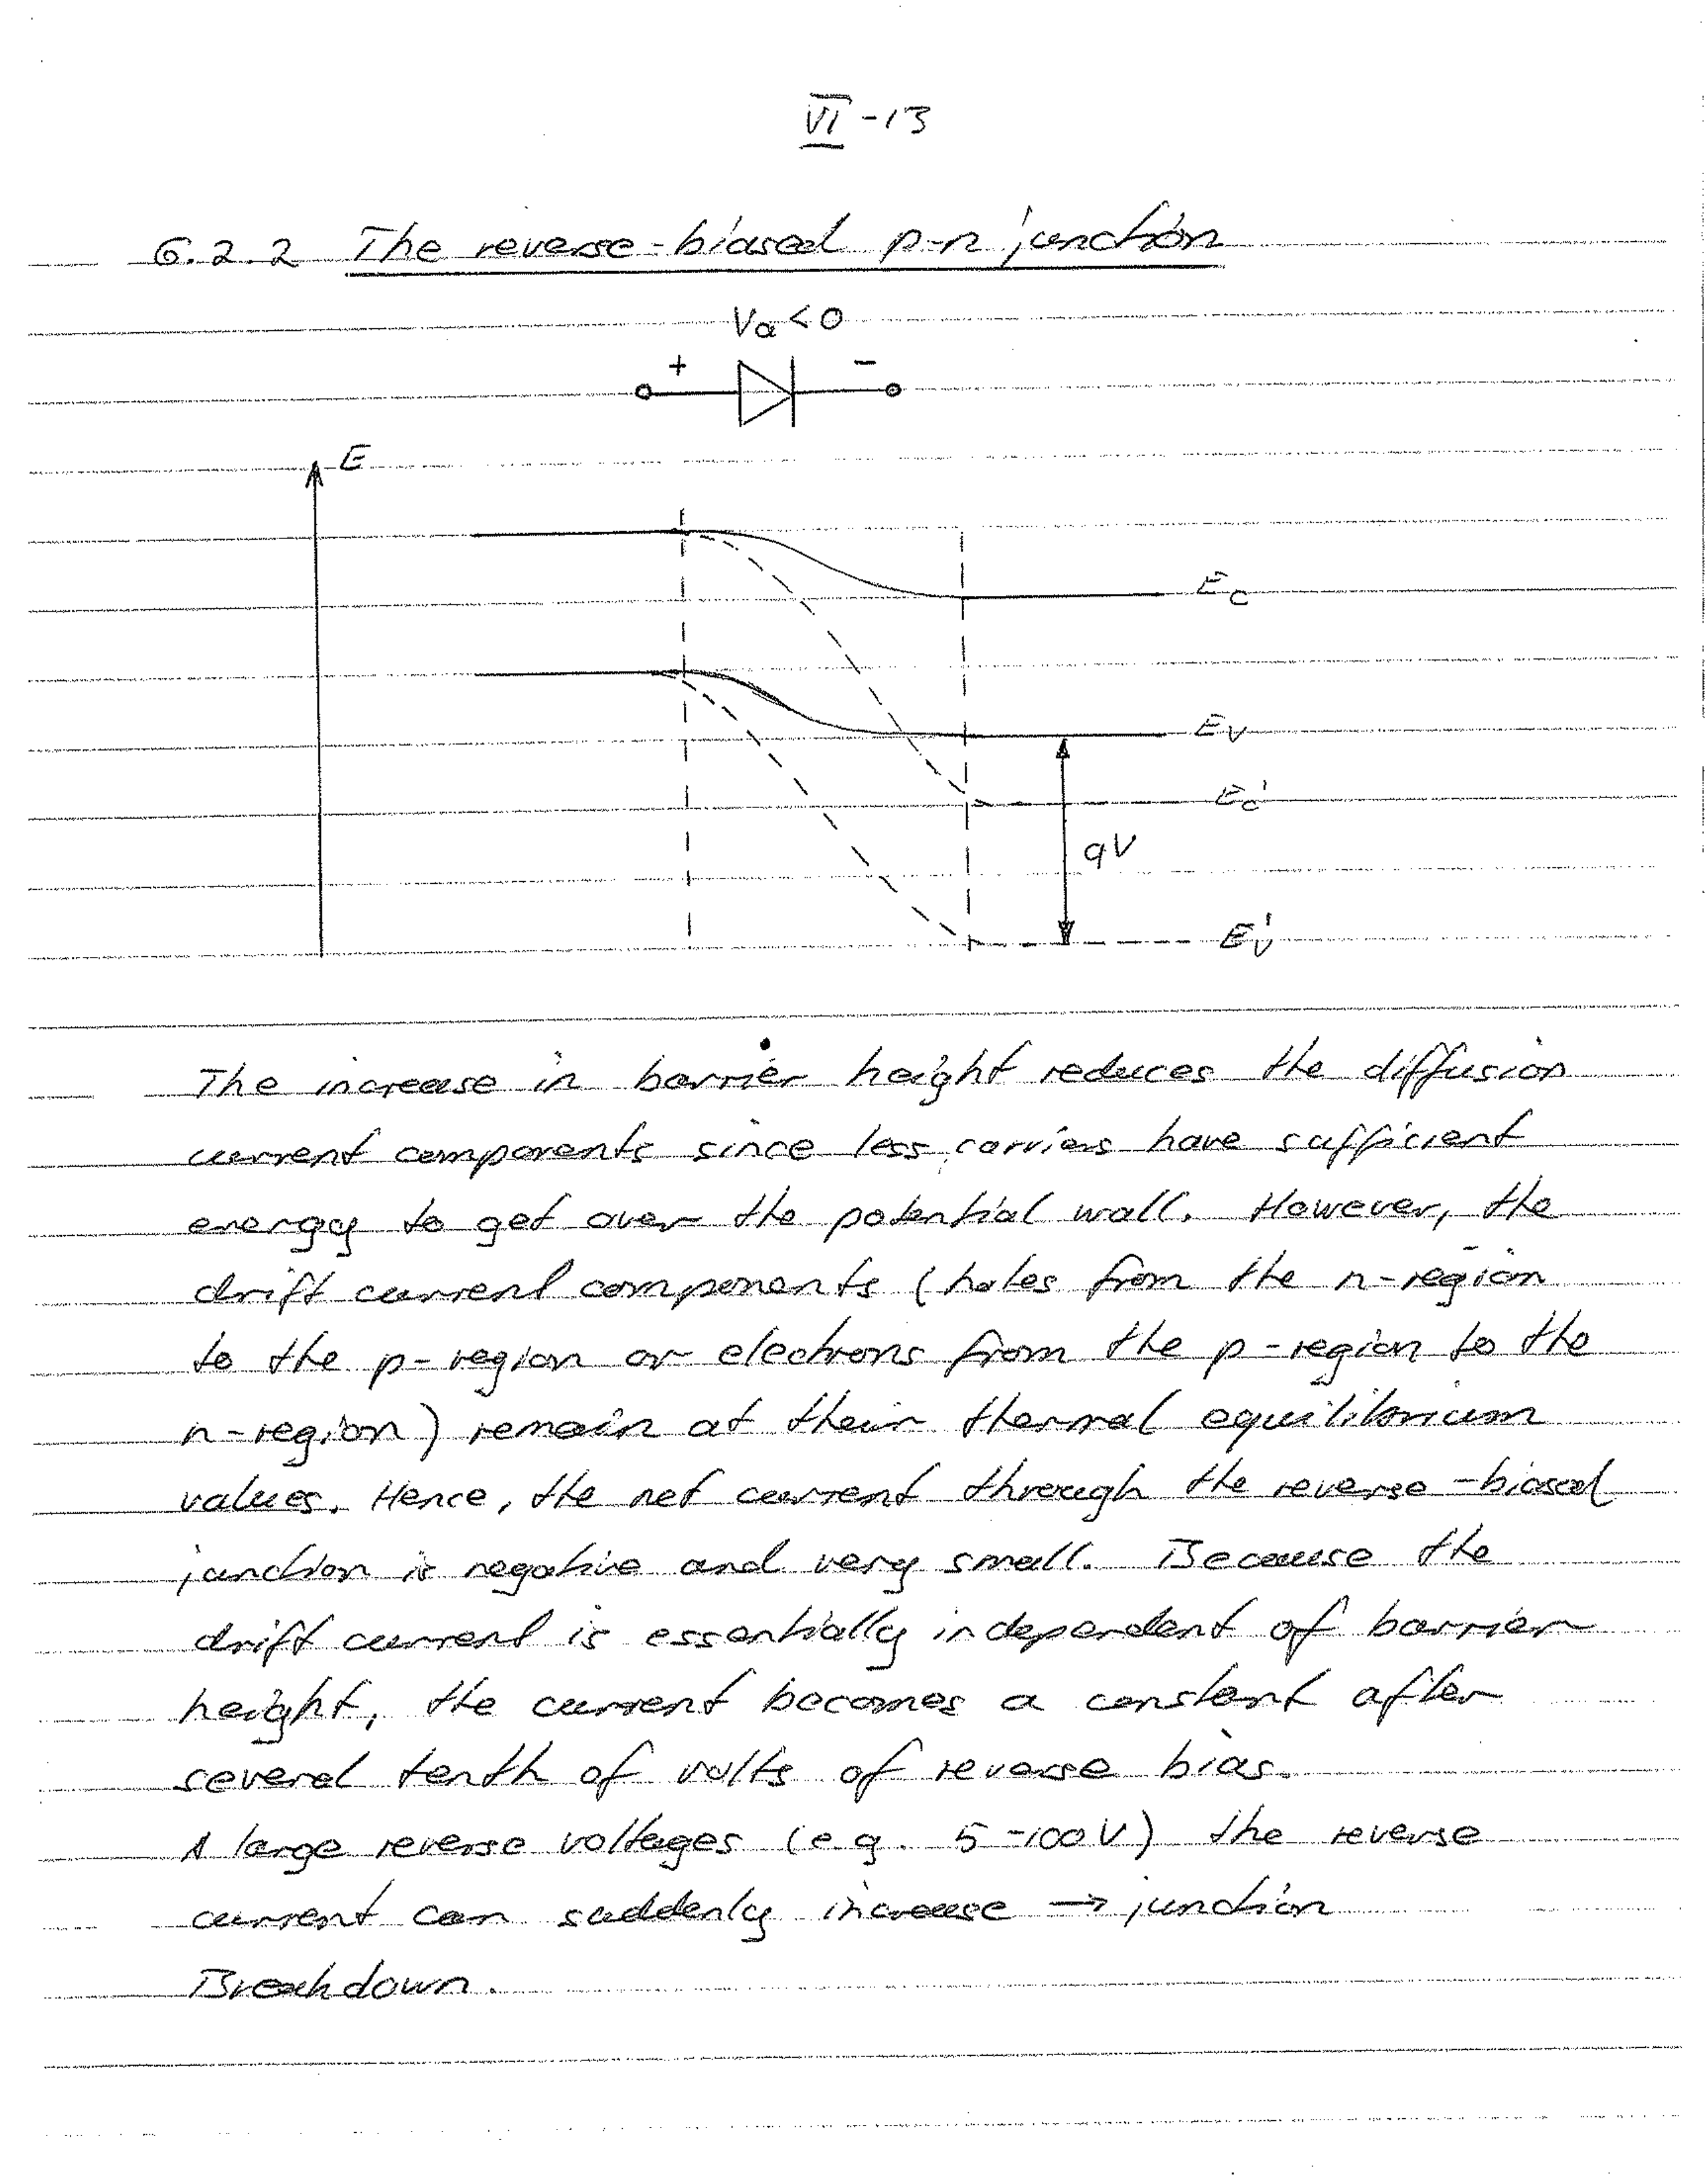 VI-13
6.2.2 The reverse-biased p-n junction
Va<0
+ -
E
Ec
Ev
Ec'
qV
Ev'
The increase in barrier height reduces the diffusion
current components since less carriers have sufficient
energy to get over the potential wall. However, the
drift current components (holes from the n-region
to the p-region or electrons from the p-region to the
n-region) remain at their thermal equilibrium
values. Hence, the net current through the reverse-biased
junction is negative and very small. Because the
drift current is essentially independent of barrier
height, the current becomes a constant after
several tenth of volts of reverse bias.
A large reverse voltages (e.g. 5-100V) the reverse
current can suddenly increase → junction
Breakdown.